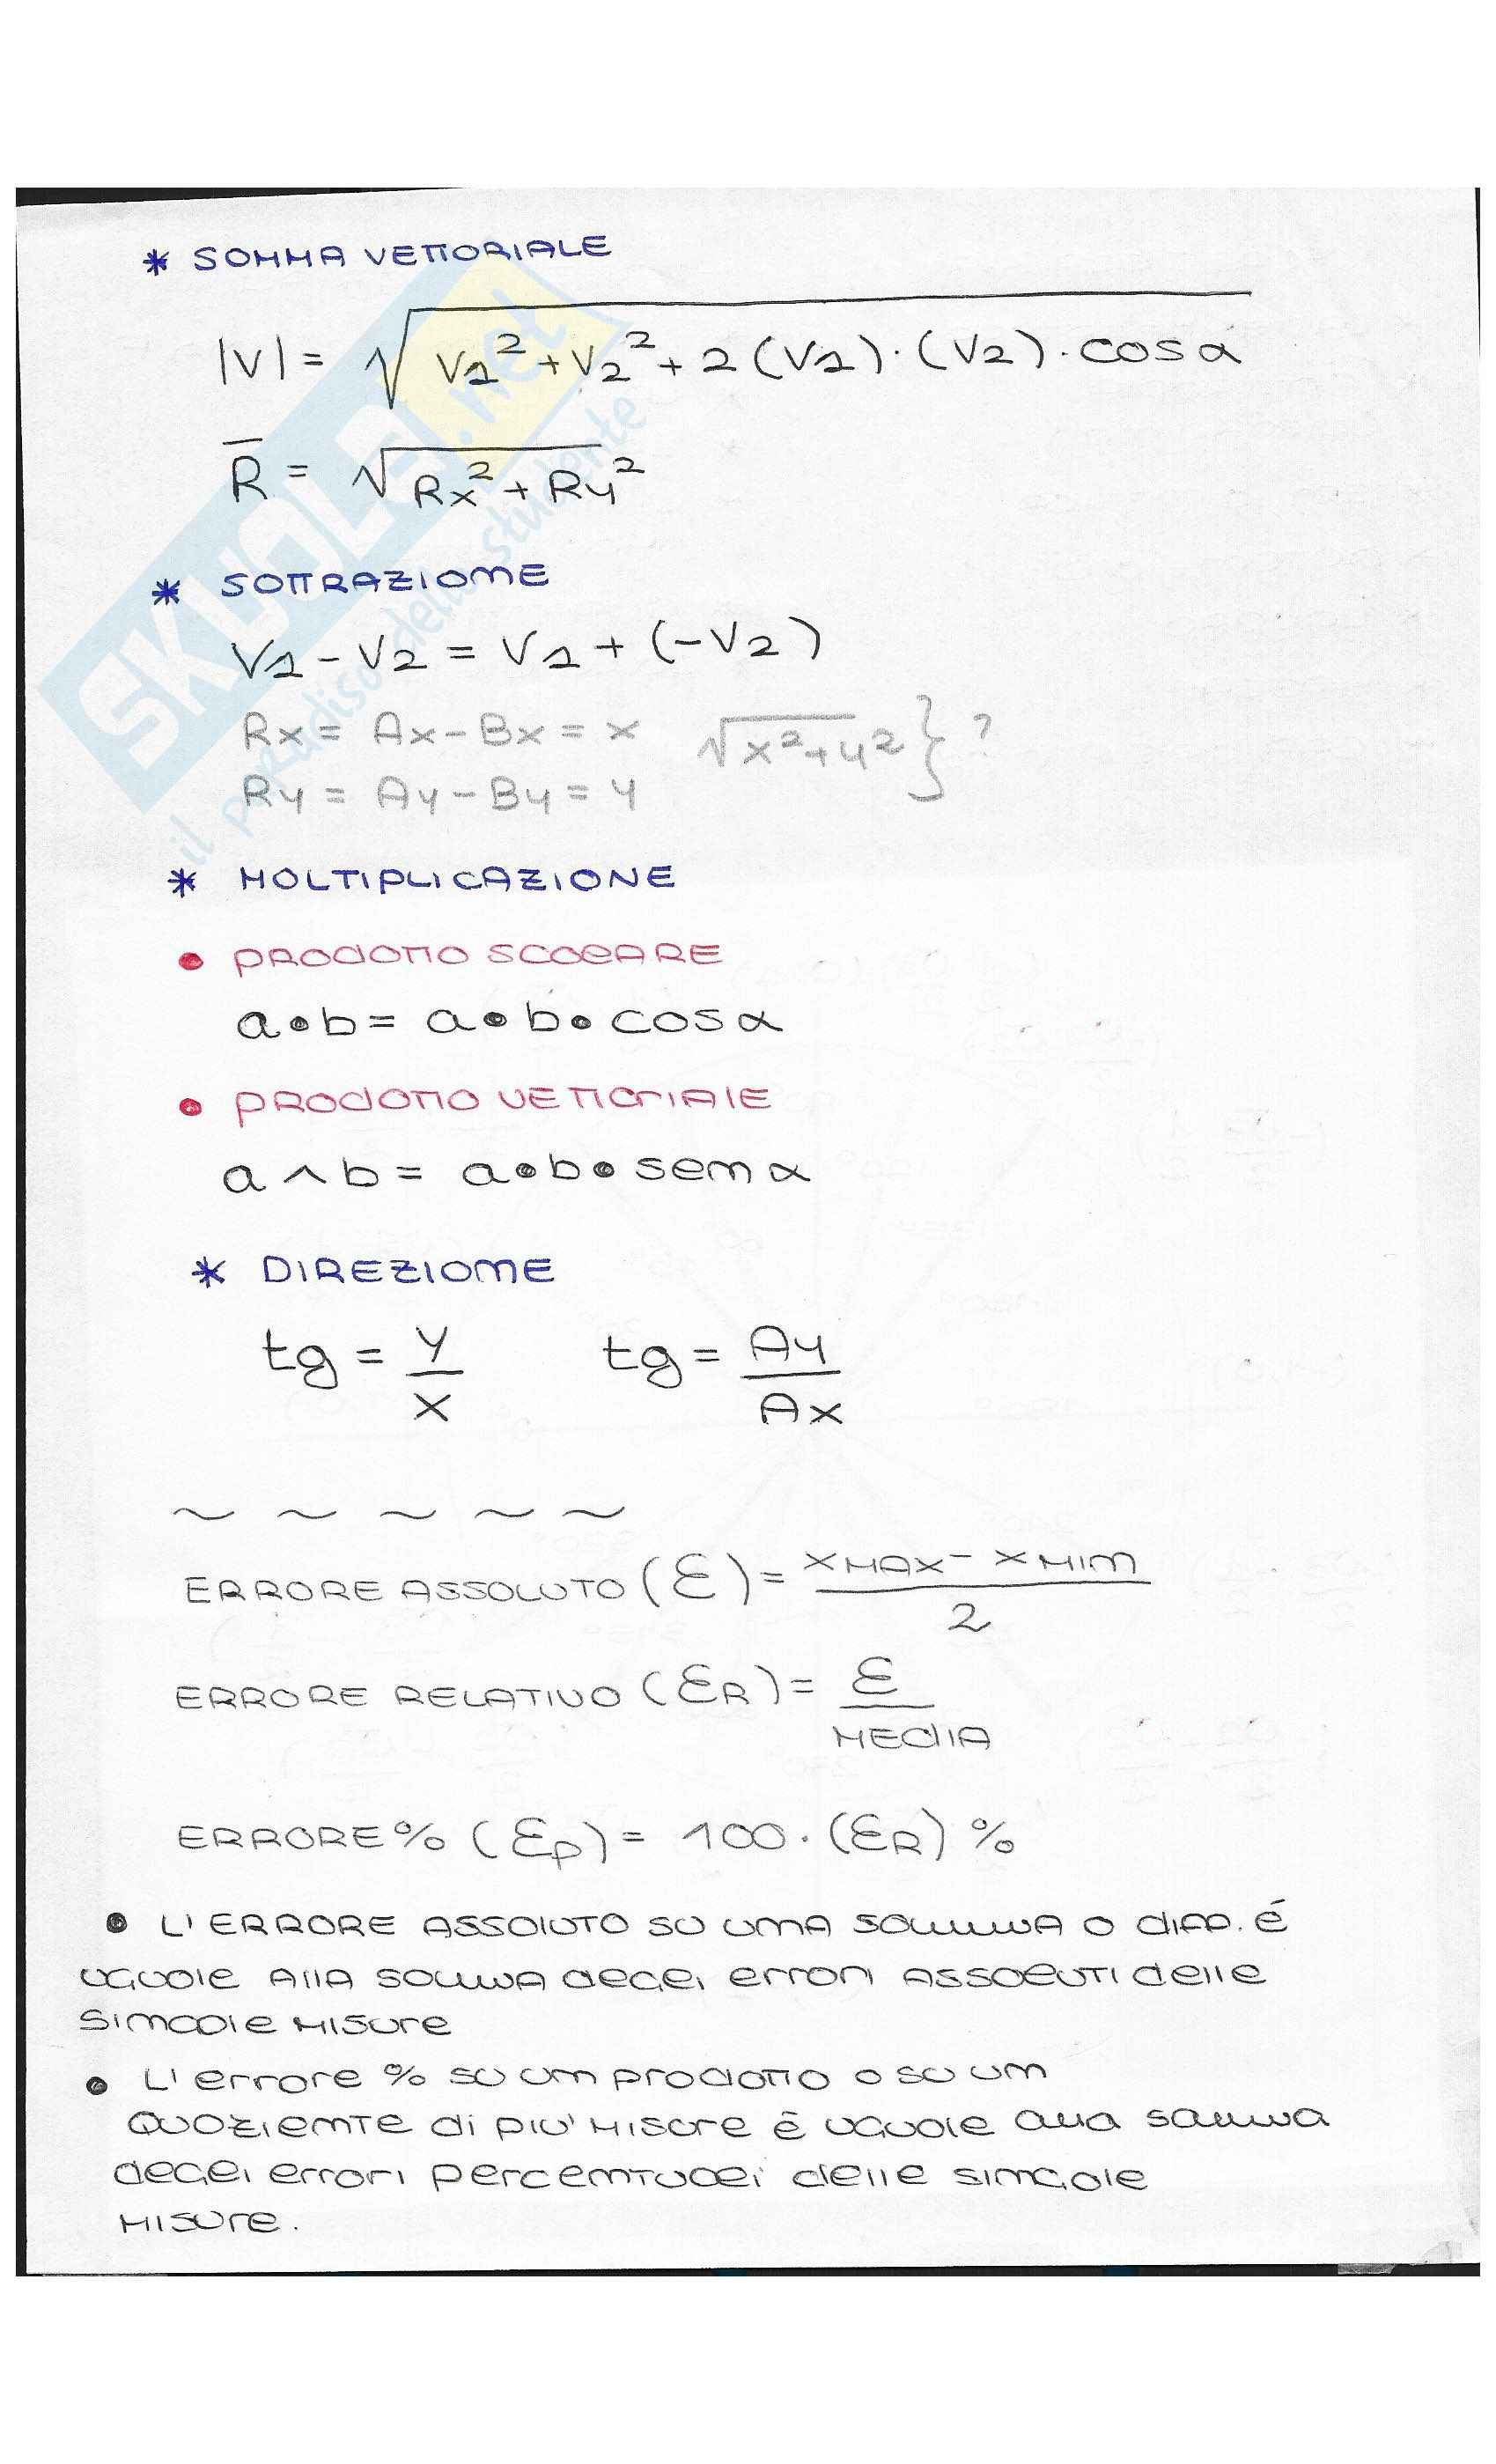 * SOMMA VETTORIALE
|V| = √(V1² + V2² + 2(V1)·(V2)·cosα)
R̅ = √(Rx² + Ry²)
* SOTTRAZIONE
V1 - V2 = V1 + (-V2)
Rx = Ax - Bx = x √(x² + y²) } ?
Ry = Ay - By = y
* MOLTIPLICAZIONE
• PRODOTTO SCALARE
a•b = a•b•cosα
• PRODOTTO VETTORIALE
a ∧ b = a•b•senα
* DIREZIONE
tg = y/x tg = Ay/Ax
~ ~ ~ ~ ~
ERRORE ASSOLUTO (Ɛ) = (xMAX - xMIN)/2
ERRORE RELATIVO (ƐR) = Ɛ/MEDIA
ERRORE % (Ɛp) = 100·(ƐR) %
• L'ERRORE ASSOLUTO SU UNA SOMMA O DIFF. É
UGUALE ALLA SOMMA DEGLI ERRORI ASSOLUTI DELLE
SINGOLE MISURE
• L'ERRORE % SU UN PRODOTTO O SU UN
QUOZIENTE DI PIU' MISURE É UGUALE ALLA SOMMA
DEGLI ERRORI PERCENTUALI DELLE SINGOLE
MISURE.
SKUOLA.net
il paradiso dello studente